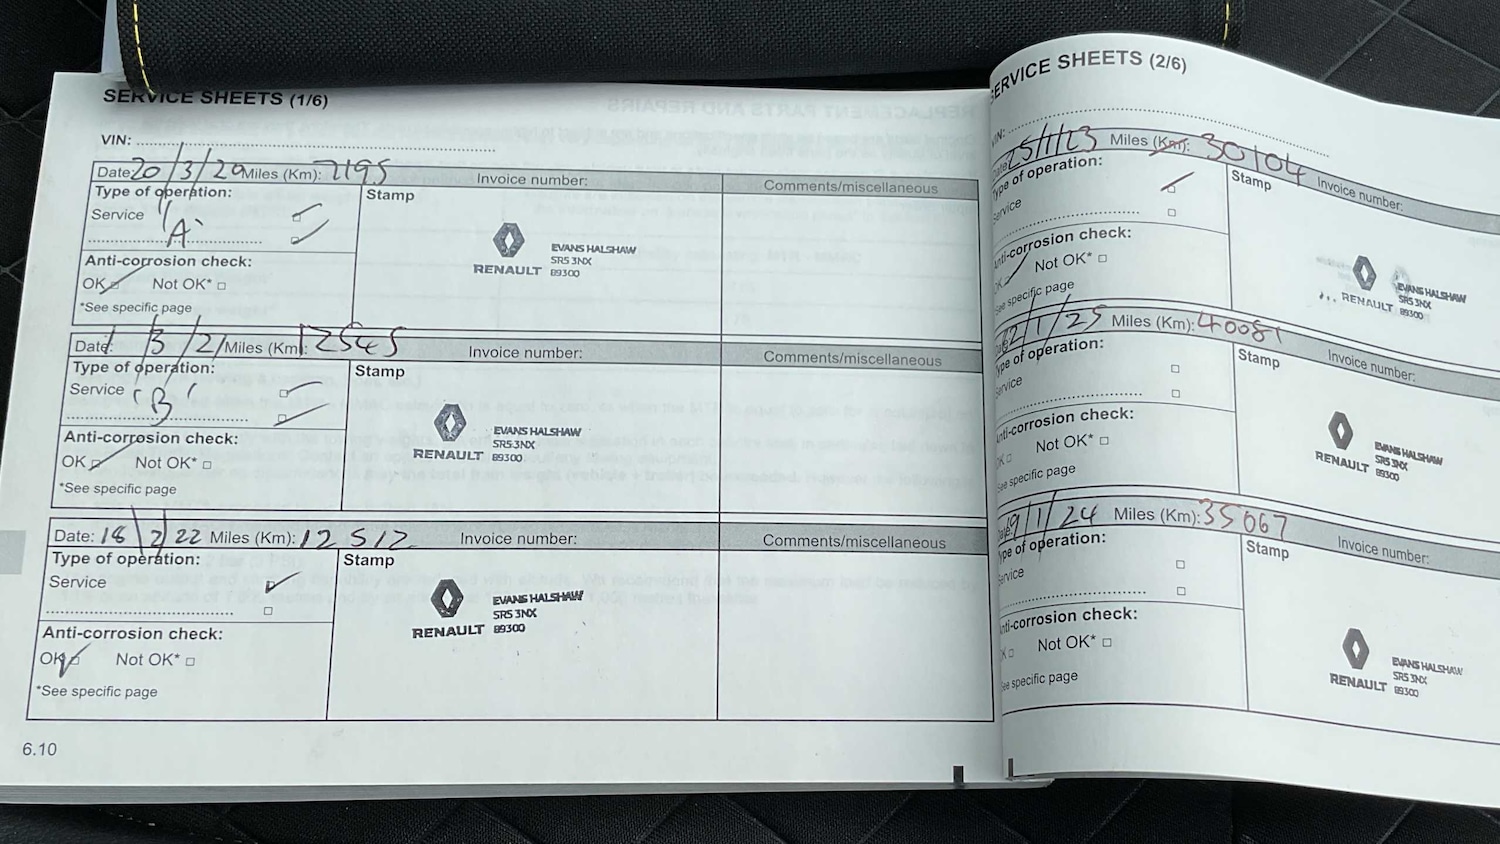 SERVICE SHEETS (1/6)
VIN:
Date: 20/3/20 Miles (Km): 7195 Invoice number: Comments/miscellaneous
Type of operation: Stamp
Service
"A"
EVANS HALSHAW
SR5 3NX
RENAULT 89300
Anti-corrosion check:
OK Not OK*
*See specific page
Date: 1/3/21 Miles (Km): 12545 Invoice number: Comments/miscellaneous
Type of operation: Stamp
Service "B"
EVANS HALSHAW
SR5 3NX
RENAULT 89300
Anti-corrosion check:
OK Not OK*
*See specific page
Date: 18/2/22 Miles (Km): 12512 Invoice number: Comments/miscellaneous
Type of operation: Stamp
Service
EVANS HALSHAW
SR5 3NX
RENAULT 89300
Anti-corrosion check:
OK Not OK*
*See specific page
6.10
SERVICE SHEETS (2/6)
VIN:
Date: 25/1/23 Miles (Km): 30104 Invoice number:
Type of operation: Stamp
Service
Anti-corrosion check:
OK Not OK*
See specific page
EVANS HALSHAW
SR5 3NX
RENAULT 89300
Miles (Km): 40081 Invoice number:
Type of operation: Stamp
Service
Anti-corrosion check:
OK Not OK*
See specific page
EVANS HALSHAW
SR5 3NX
RENAULT 89300
Miles (Km): 35067 Invoice number:
Type of operation: Stamp
Service
Anti-corrosion check:
OK Not OK*
See specific page
EVANS HALSHAW
SR5 3NX
RENAULT 89300